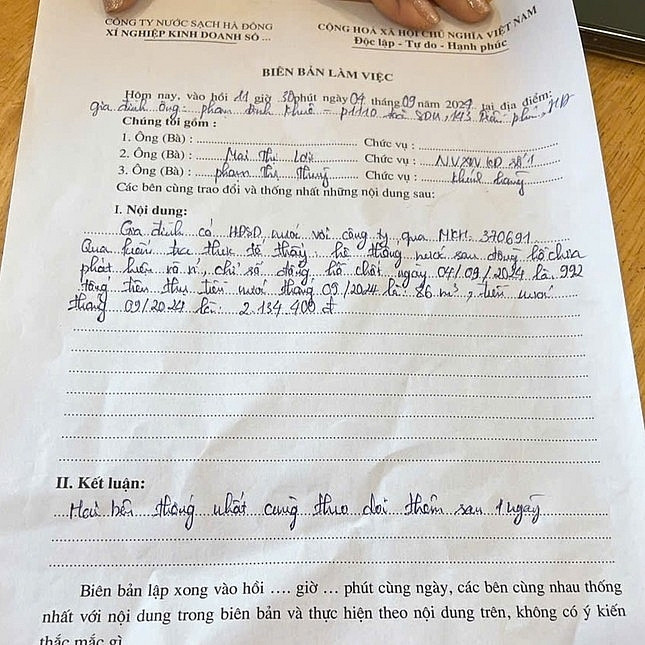 CÔNG TY NƯỚC SẠCH HÀ ĐÔNG
XÍ NGHIỆP KINH DOANH SỐ ...
CỘNG HOÀ XÃ HỘI CHỦ NGHĨA VIỆT NAM
Độc lập - Tự do - Hạnh phúc
BIÊN BẢN LÀM VIỆC
Hôm nay, vào hồi 11 giờ 30 phút ngày 04 tháng 09 năm 2024 tại địa điểm:
gia đình ông: phạm Đình Khuê - p1110 toà SDU, 143 Trần phú, HĐ
Chúng tôi gồm :
1. Ông (Bà) : Chức vụ :
2. Ông (Bà) : Mai Thu Chức vụ : NV XN KD số 1
3. Ông (Bà) : phạm Thị Chức vụ : khách hàng
Các bên cùng trao đổi và thống nhất những nội dung sau:
I. Nội dung:
Gia đình có HĐSD nước với công ty, qua MKH: 370691
Qua kiểm tra thực tế thấy: hệ thống nước sau đồng hồ chưa
phát hiện rò rỉ, chỉ số đồng hồ chốt ngày 04/09/2024 là 992
tổng tiêu thụ tiền nước tháng 09/2024 là: 86 m³, tiền nước
tháng 09/2024 là: 2.134.400 đ
II. Kết luận:
Hai bên thống nhất cùng theo dõi thêm sau 1 ngày
Biên bản lập xong vào hồi .... giờ ... phút cùng ngày, các bên cùng nhau thống
nhất với nội dung trong biên bản và thực hiện theo nội dung trên, không có ý kiến
thắc mắc gì